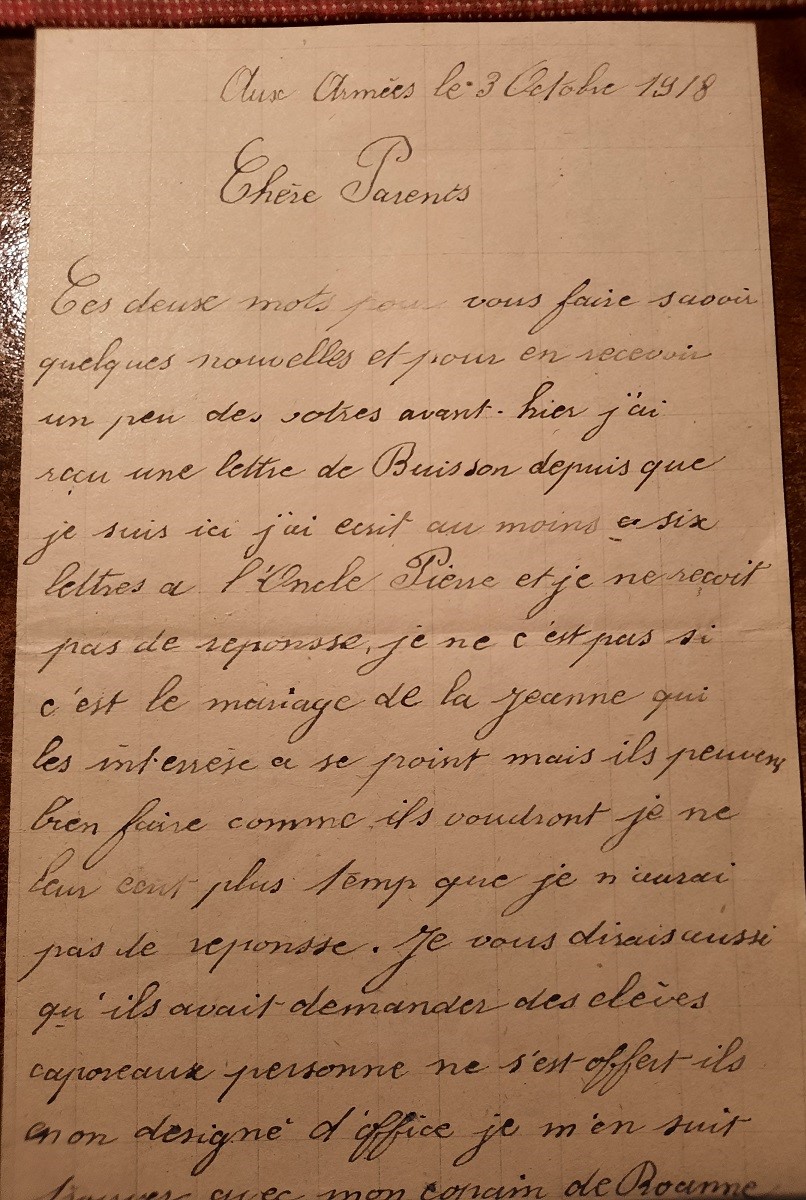 Aux Armées le 3 Octobre 1918
Chère Parents
Ces deux mots pour vous faire savoir
quelques nouvelles et pour en recevoir
un peu des votres avant-hier j'ai
reçu une lettre de Buisson depuis que
je suis ici j'ai ecrit au moins a six
lettres a l'Oncle Pièrre et je ne reçoit
pas de reponsse, je ne c'est pas si
c'est le mariage de la Jeanne qui
les interrèse a se point mais ils peuvent
bien faire comme ils voudront je ne
leur ecrit plus temp que je n'aurai
pas de reponsse. Je vous dirais aussi
qu'ils avait demander des elèves
caporeaux personne ne s'est offert ils
en on designé d'office je m'en suit
trouver avec mon copain de Roanne